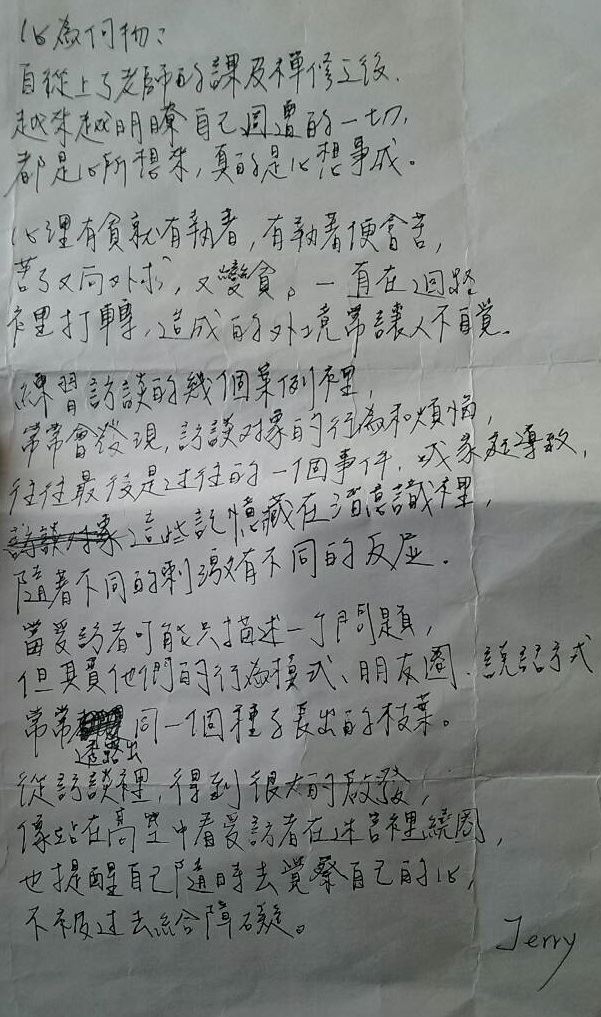 心為何物：
自從上了老師的課及禪修之後，
越來越明瞭自己週遭的一切，
都是心所想來，真的是心想事成。
心理有貪就有執著，有執著便會苦，
苦了又向外求，又變貪。一直在迴路
裡打轉，造成的外境常讓人不自覺。
練習訪談的幾個案例裡，
常常會發現，訪談对象的行為和煩惱，
往往最後是过往的一個事件，或家庭導致，
這些記憶藏在潛意識裡，
隨著不同的刺激有不同的反应。
當受訪者可能只描述一个問題，
但其實他們的行為模式、朋友圈、說話方式
常常透露出同一個種子長出的枝葉。
從訪談裡，得到很大的啟發，
像站在高空中看受訪者在迷宮裡繞圈，
也提醒自己隨時去覺察自己的心，
不被过去給障礙。
Jerry